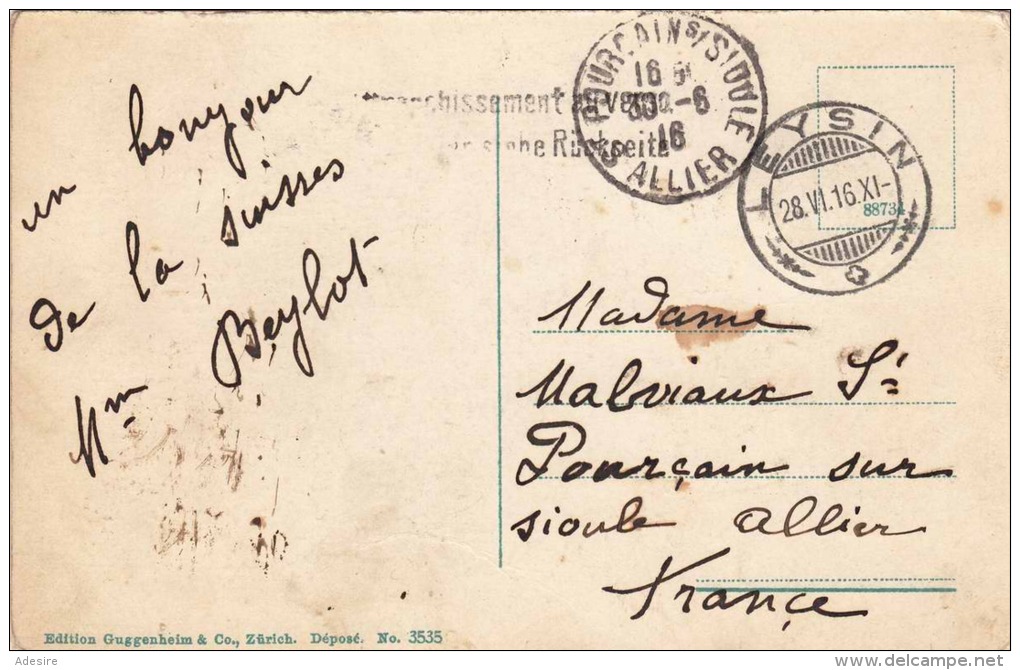 un bonjour
de la suisses
Mm Beylot
Affranchissement au verso.
siehe Rückseite
ST POURÇAIN S/SIOULE
16
30-6
16
ALLIER
LEYSIN
28.VI.16.XI-
88734
Madame
Malviaux St
Pourçain sur
sioule allier
françe
Edition Guggenheim & Co., Zürich. Déposé. No. 3535
Adesire
delcampe.net